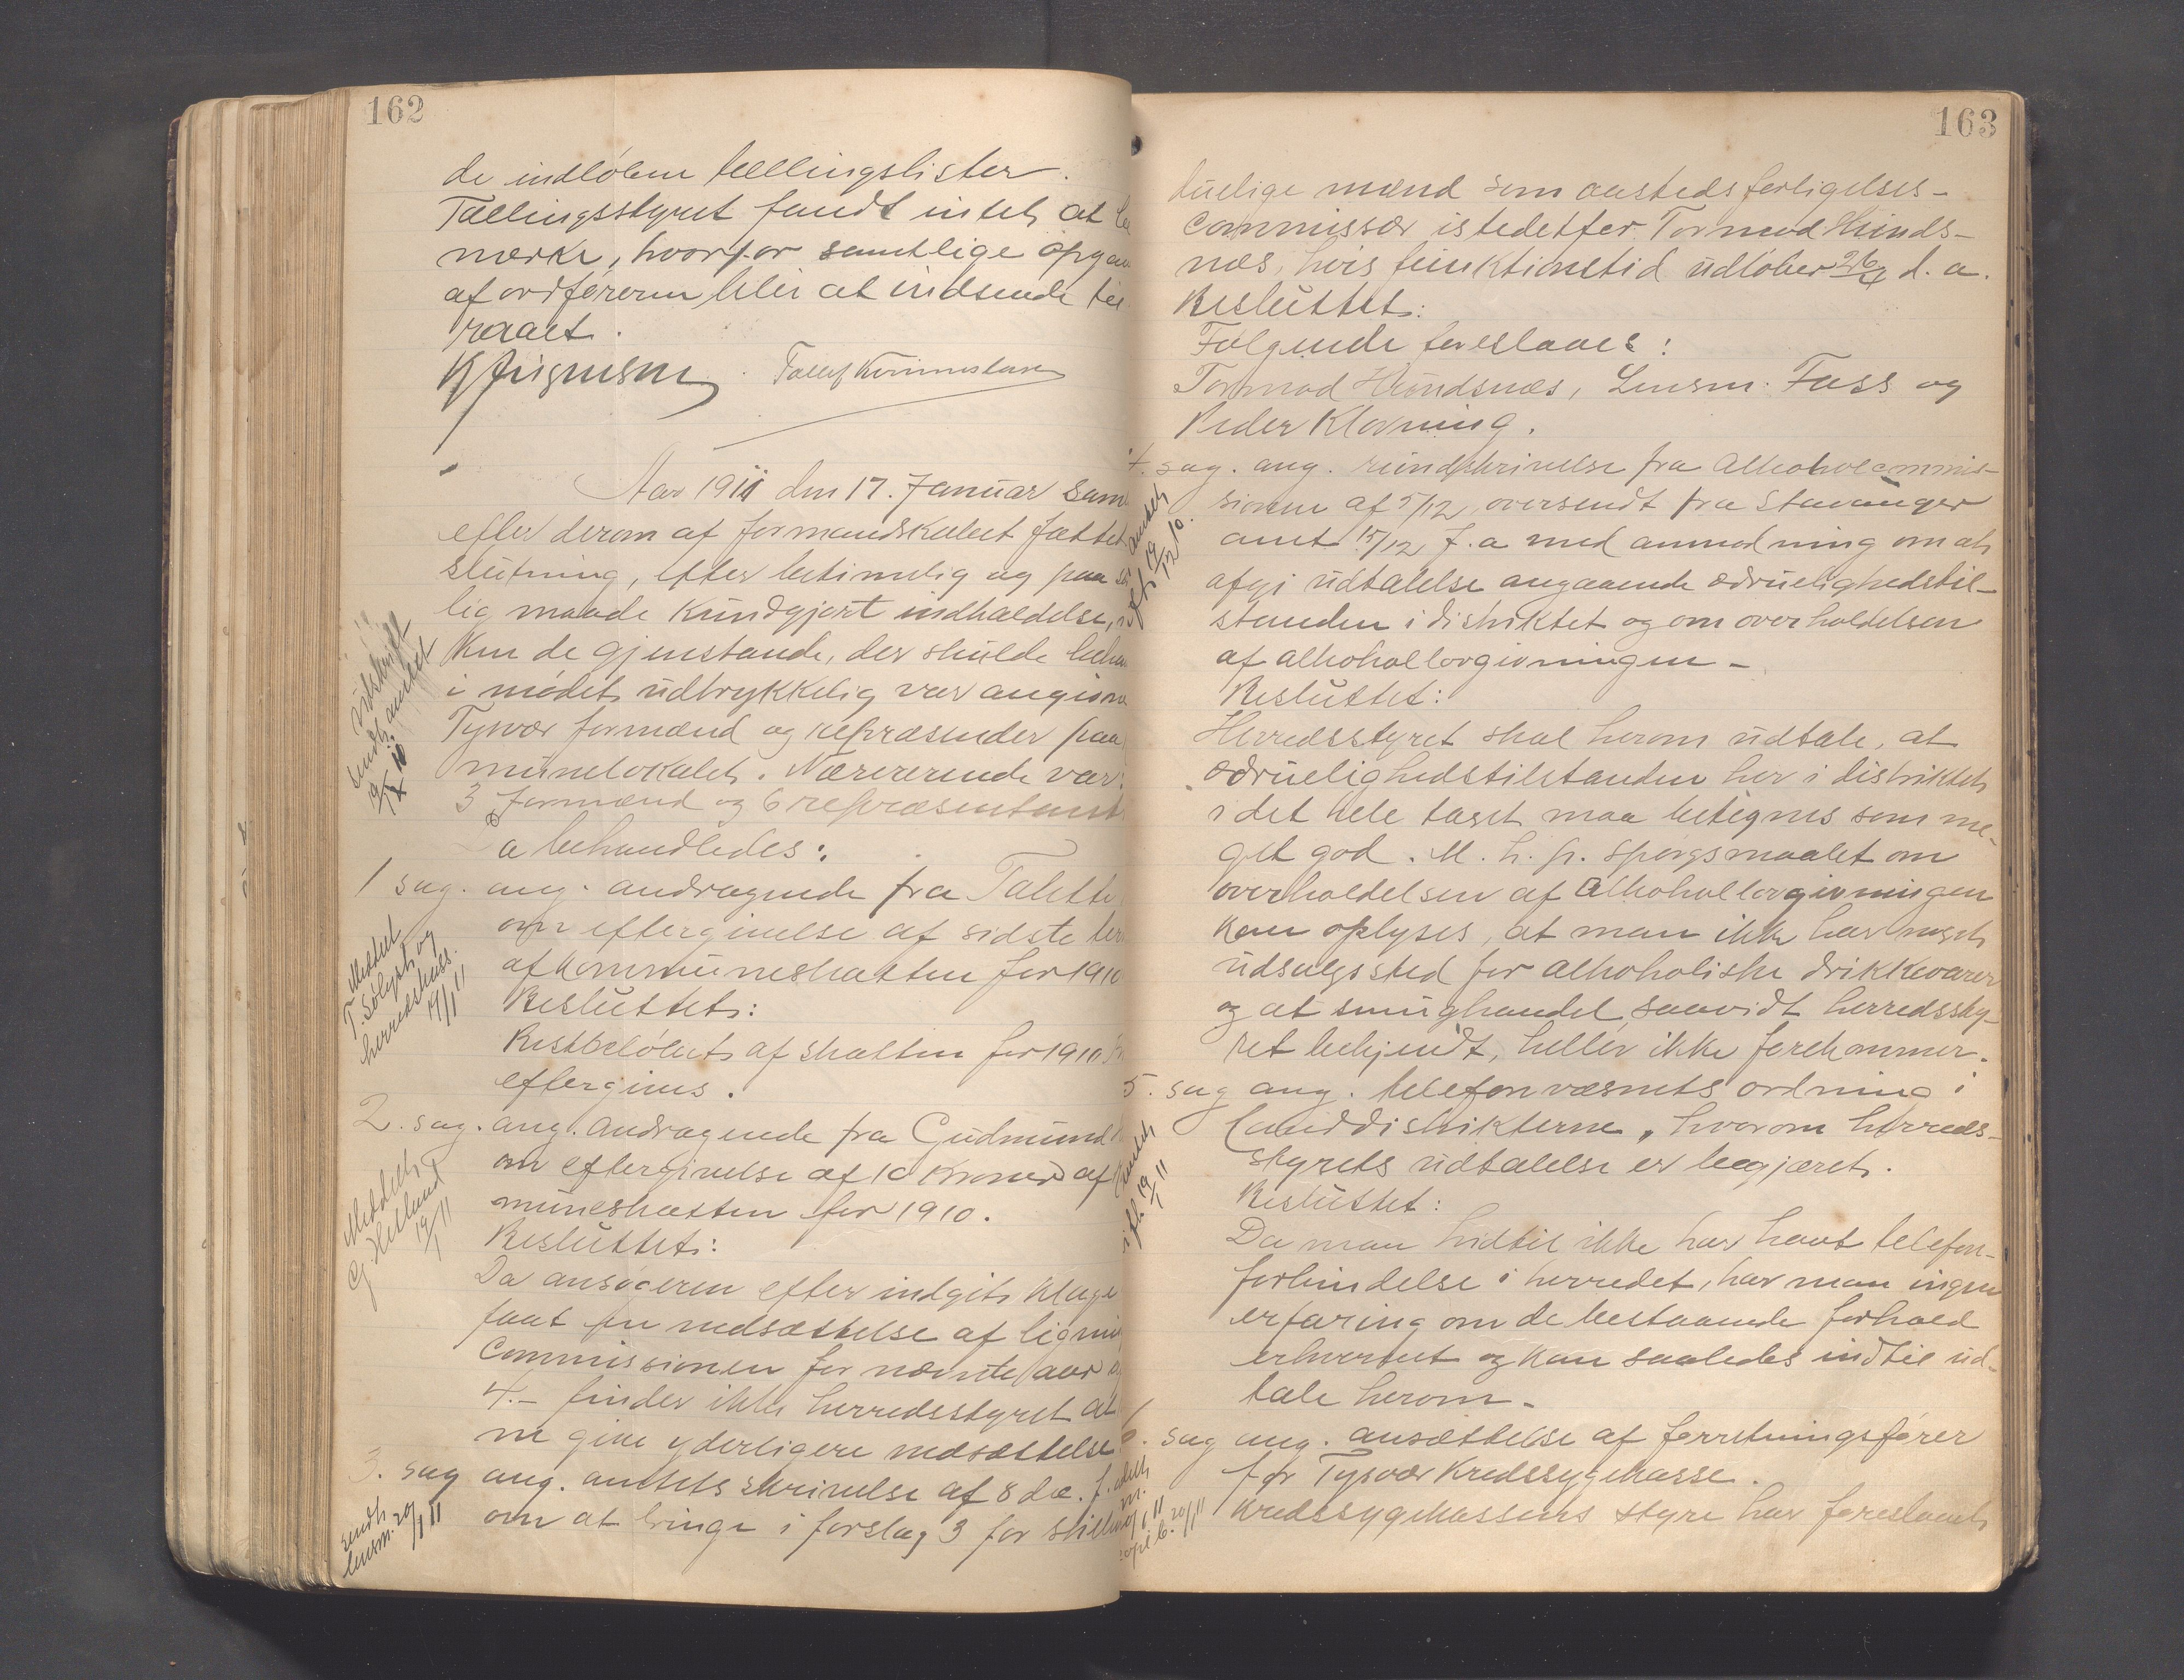 162
de indløbne tællingslister.
Tællingsstyret fandt intet at be
mærke, hvorfor samtlige opga
af ordføreren blir at indsende til
raaet.
Aar 1911 den 17. Januar sam
efter derom af formandskabet fattet
slutning, efter betimelig og paa
lig maade kundgjort indkaldelse,
ken de gjenstande, der skulde beha
i mødet udtrykkelig var angivne
Tysvær formænd og repræsenter paa
munelokalet. Nærværende var:
3 formænd og 6 repræsentant
Da behandledes:
1 sag. ang. andragende fra
om eftergivelse af sidste ter
af kommuneskatten for 1910
Besluttet:
Restbeløbet af skatten for 1910
eftergives.
2. sag. ang. andragende fra Gudmund
om eftergivelse af 10 kroner af
muneskatten for 1910.
Besluttet:
Da ansøgeren efter indgit klage
faat en nedsættelse af lignin
Commissionen for nævnte aar
4.- finder ikke herredsstyret at
ne give yderligere nedsættelse
3. sag ang. amtets skrivelse af 8 de. f.
om at bringe i forslag 3 for stilling
Udskrift
sendt amtet
Meddelt
T. Sølgst og
herredskass.
19/1 11
Meddelt
G. Helland
19/1 11
sendt
lensm. 20/1 11
163
duelige mænd som aasteds forligelses-
Commissær istedetfor Tormod Hunds-
næs, hvis funktionstid udløber 26/4 d. a.
Besluttet:
Følgende foreslaaes:
Tormod Hundsnæs, Lensm. Fass og
Peder Klovning.
4. sag. ang. rundskrivelse fra Alkoholcommis-
sionen af 5/12, oversendt fra Stavanger
amt 15/12 f. a med anmodning om at
afgi udtalelse angaaende ædruelighedstil-
standen i distriktet og om overholdelsen
af alkohollovgivningen -
Besluttet:
Herredsstyret skal herom udtale, at
ædruelighedstilstanden her i distriktet
i det hele taget maa betegnes som me-
get god. M. h. p. spørgsmaalet om
overholdelsen af Alkohollovgivningen
kan oplyses, at man ikke har noget
udsalgssted for alkoholiske drikkevarer
og at smughandel, saavidt herredssty-
ret bekjendt, heller ikke forekommer.
5. sag ang. telefonvæsnets ordning i
landdistrikterne, hvorom herreds-
styrets udtalelse er begjæret.
Besluttet:
Da man hidtil ikke har havt telefon-
forbindelse i herredet, har man ingen
erfaring om de bestaaende forhold
erhvervet og kan saaledes indtil ud-
tale herom.
6. sag ang. ansættelse af forretningsfører
for Tysvær Kredssygekasse.
Kredssygekassens styre har foreslaaet